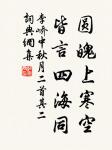 圆魄上寒空
皆言四海同
李峤中秋月二首其二
词典网集